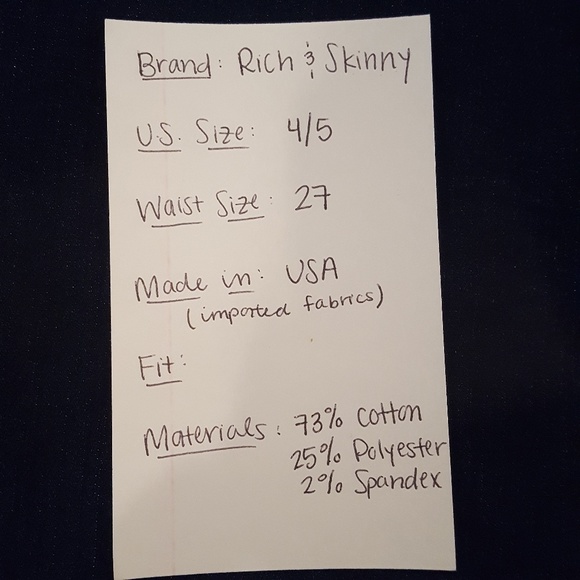 Brand: Rich & Skinny
U.S. Size: 4/5
Waist Size: 27
Made in: USA
(imported fabrics)
Fit:
Materials: 73% Cotton
25% Polyester
2% Spandex